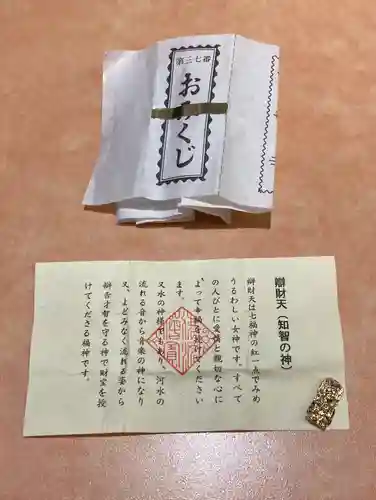 第三七番
おみくじ
辯財天(知智の神)
辯財天は七福神の紅一点でみめ
うるわしい女神です。すべて
の人びとに愛情と親切な心に
よって幸福を授けてください
ます。
又水の神様でもあり、河水の
流れる音から音楽の神になり
又、よどみなく流れる姿から
辯舌才智を守る神で財宝を授
けてくださる福神です。